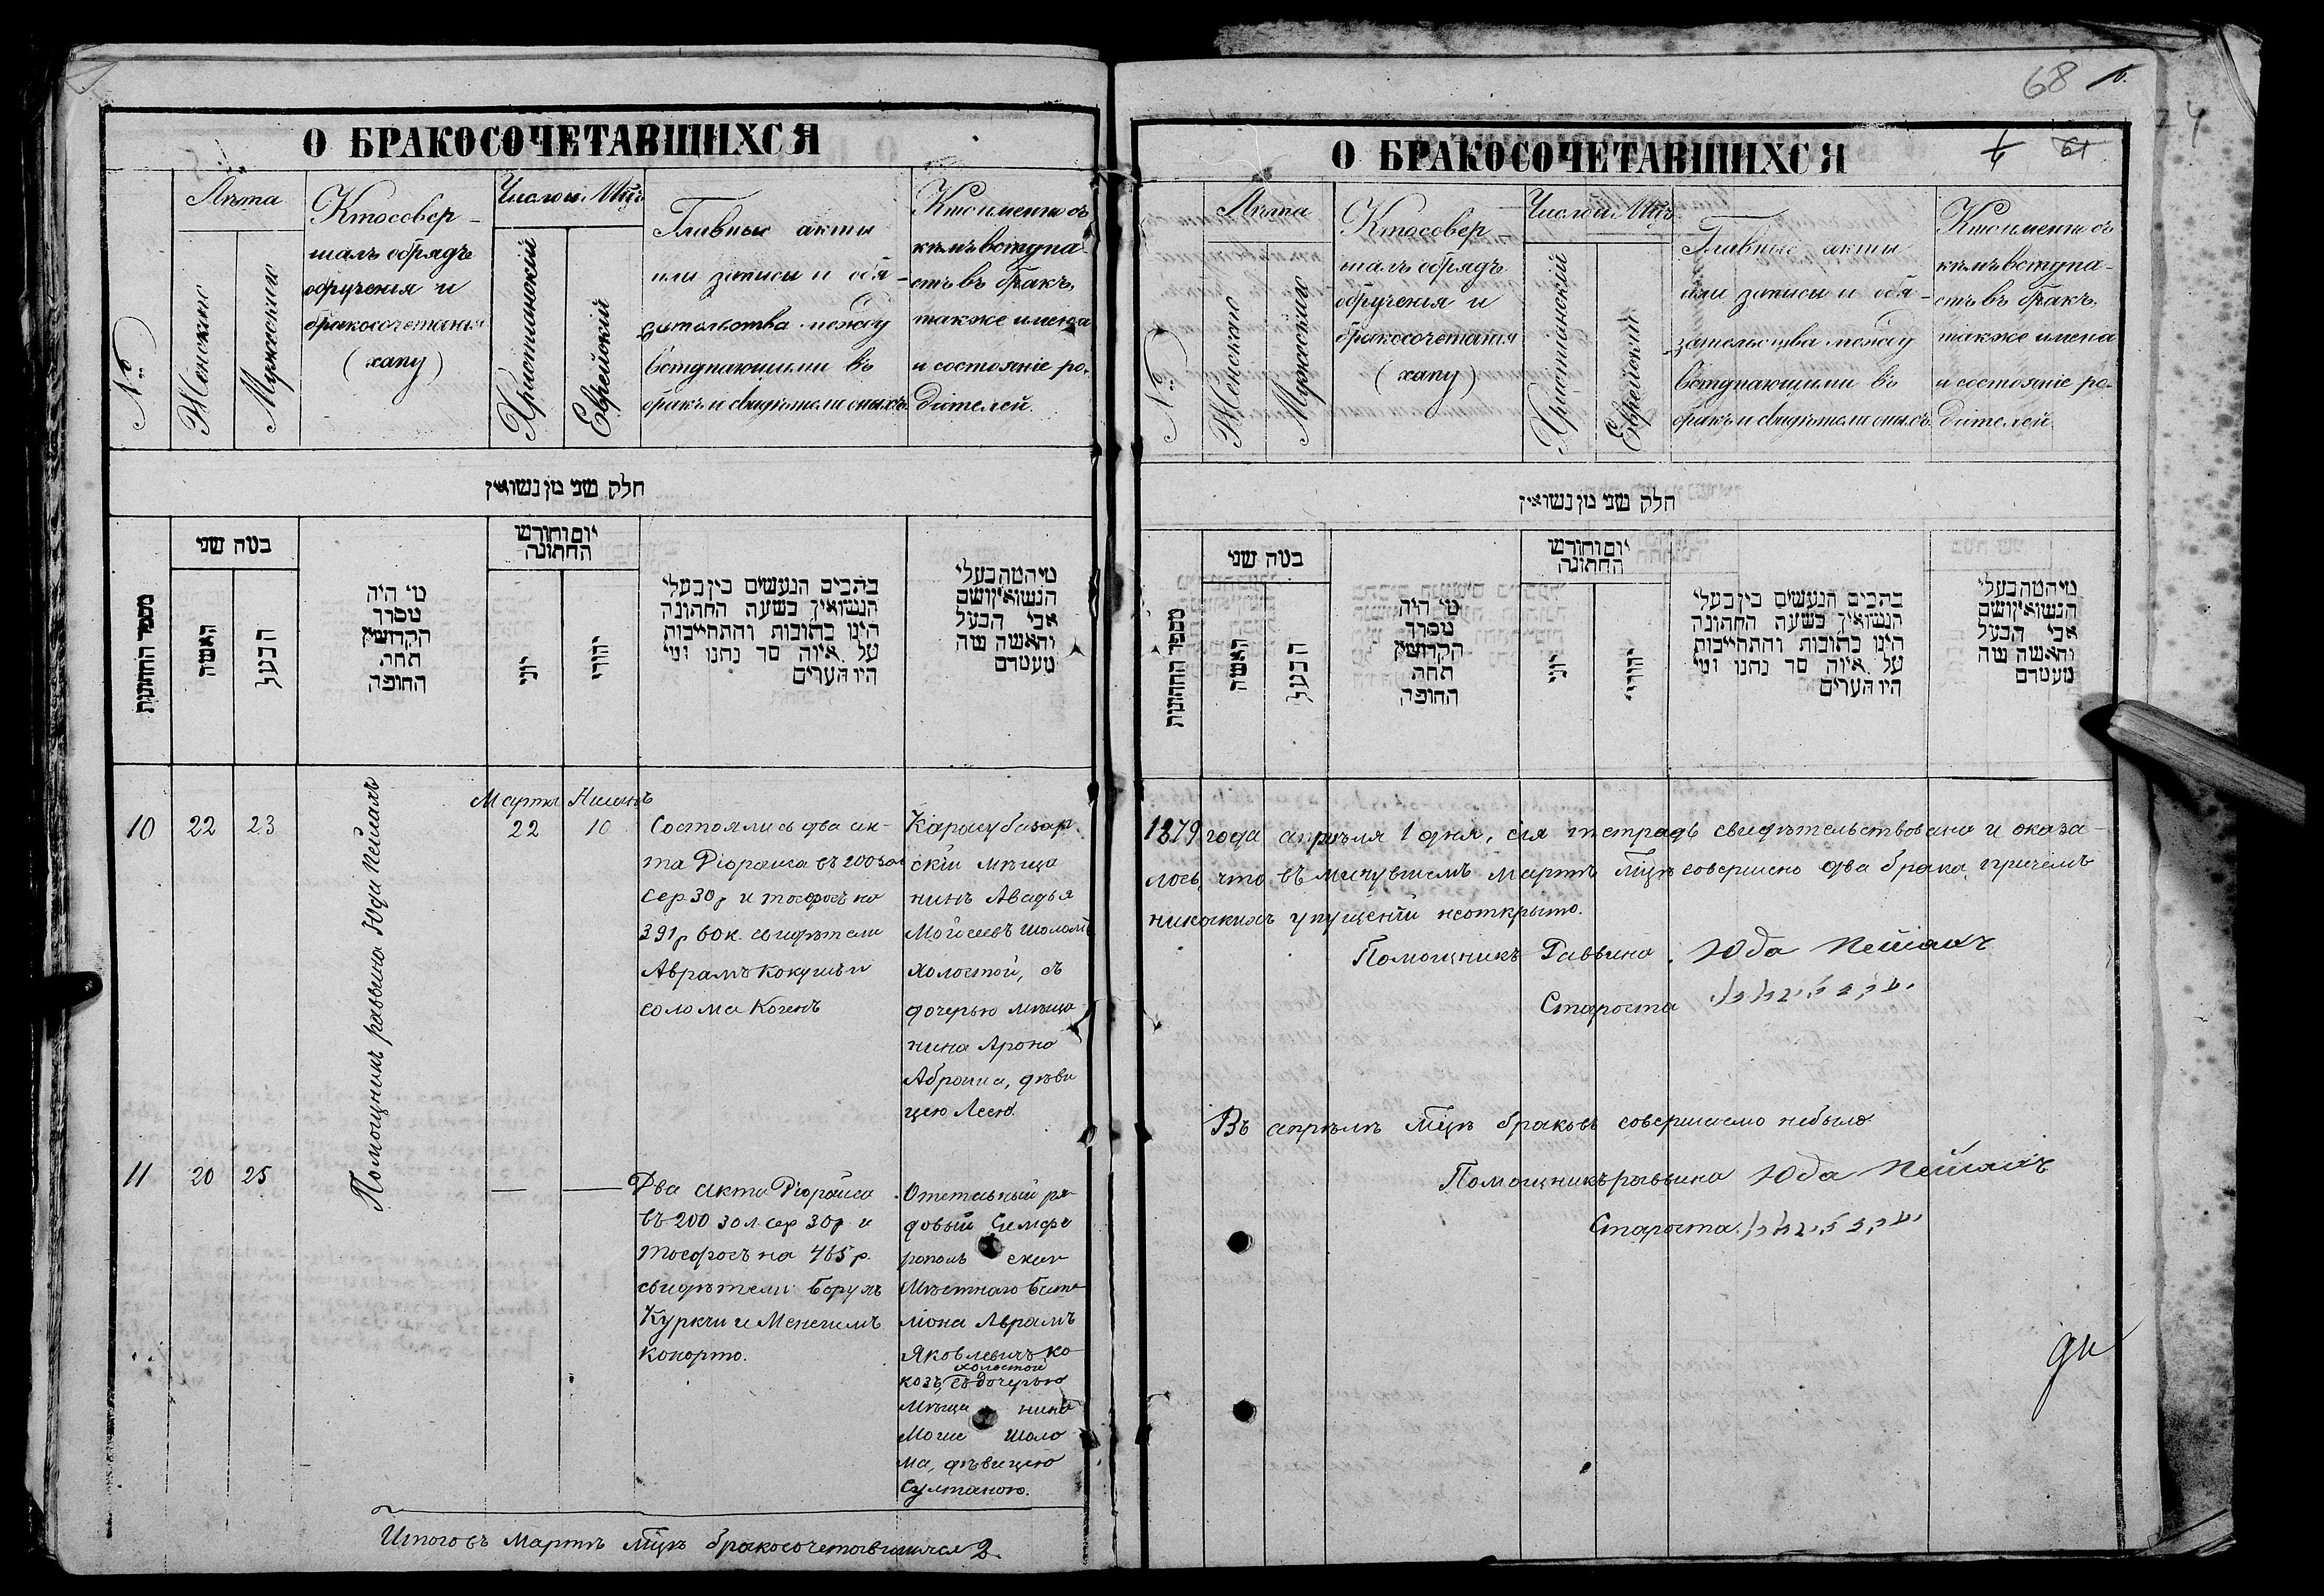 О БРАКОСОЧЕТАВШИХСЯ
№
Лѣта
Женскихъ
Мужескихъ
Кто совер-
шалъ обрядъ
обрученія и
бракосочетанія
(хапу)
Число и Мцъ
Христіанскій
Еврейскій
Главные акты
или записи и обя-
зательства между
вступающими въ
бракъ и свидѣтели оныхъ
Кто именно съ
кѣмъ вступа-
етъ въ бракъ,
также имена
и состояніе ро-
дителей.
חלק שני מן נשואין
מספר החתונות
כמה שני
האשה
הבעל
מי היה
מסדר
הקדושין
תחת
החופה
יום וחודש
החתונה
יוני
יהודי
כתבים הנעשים בין בעלי
הנשואין בשעה החתונה
היינו כתובות והתחייבות
על איזה סך נתנו ומי
היו העדים
מיהמה בעלי
הנשואין ושם
אבי הבעל
והאשה מה
מעמדם
10
22
23
Помощникъ раввина Юда Пейсахъ
Марта
22
Нисанъ
10
Состоялись два ак-
та Кіорайса въ 200 зол
сер 30 р и тосфосъ на
391 р 60 к. свидѣтели
Аврамъ Кокушъ и
солома Когенъ
Карасубазар.
скій мѣща
нинъ Авадья
Мойсеевъ Шоломъ
холостой, съ
дочерью мѣща
нина Арона
Аброма, дѣви
цею Леею.
11
20
25
Два акта Кіорайса
въ 200 зол сер 30 р и
тосфосъ на 465 р.
свидѣтели Борухъ
Куркчи и Менехимъ
Конорто.
Отставный ря
довый Симфе
ропольскаго
Мѣстнаго Бата
ліона Аврамъ
Яковлевичъ Ко
холостой
козъ, съ дочерью
мѣщанина
Моше Шоло
ма, дѣвицею
Султаною.
Итого въ Мартѣ Мцѣ бракосочетавшихся 2.
68
61
4
О БРАКОСОЧЕТАВШИХСЯ
№
Лѣта
Женскихъ
Мужескихъ
Кто совер-
шалъ обрядъ
обрученія и
бракосочетанія
(хапу)
Число и Мцъ
Христіанскій
Еврейскій
Главные акты
или записи и обя-
зательства между
вступающими въ
бракъ и свидѣтели оныхъ
Кто именно съ
кѣмъ вступа-
етъ въ бракъ,
также имена
и состояніе ро-
дителей
חלק שני מן נשואין
מספר החתונות
כמה שני
האשה
הבעל
מי היה
מסדר
הקדושין
תחת
החופה
יום וחודש
החתונה
יוני
יהודי
כתבים הנעשים בין בעלי
הנשואין בשעה החתונה
היינו כתובות והתחייבות
על איזה סך נתנו ומי
היו העדים
מיהמה בעלי
הנשואין ושם
אבי הבעל
והאשה מה
מעמדם
1879 года апрѣля 1 дня, сія тетрадь свидѣтельствована и оказа-
лось, что въ минувшемъ Мартѣ Мцѣ совершено два брака, причемъ
никакихъ упущеній неоткрыто.
Помощникъ Раввина Юда Пейсахъ
Староста
Въ апрѣлѣ Мцѣ браковъ совершаемо небыло
Помощникъ раввина Юда Пейсахъ
Староста